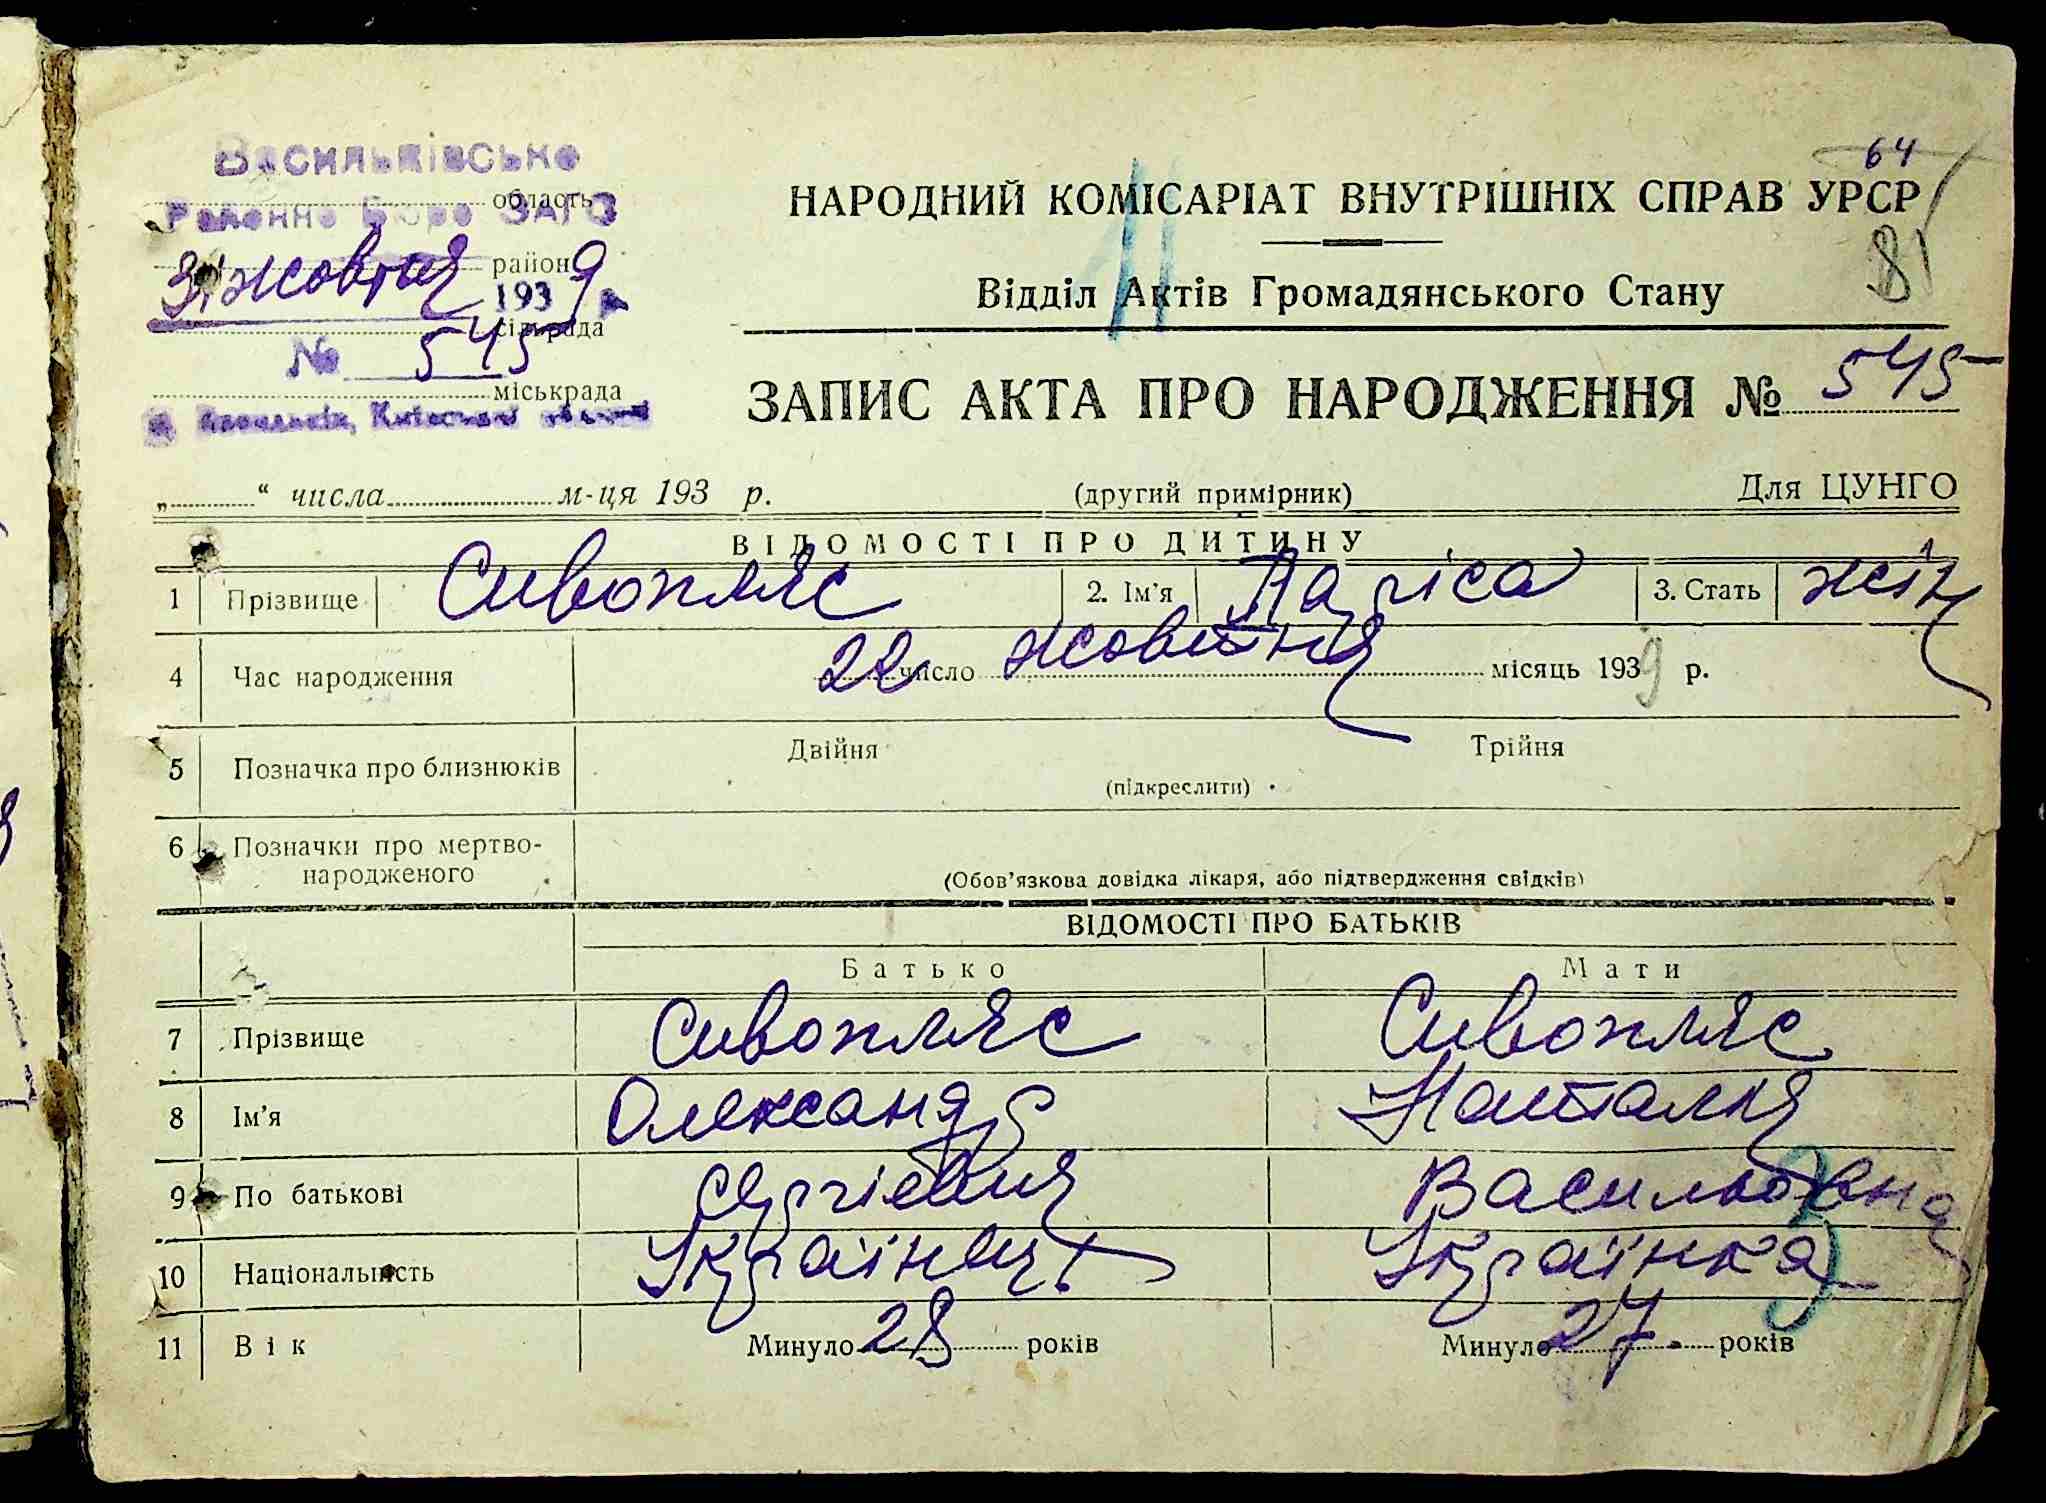 64
Васильківське
Районне Бюро ЗАГС
область
НАРОДНИЙ КОМІСАРІАТ ВНУТРІШНІХ СПРАВ УРСР
81
31 жовтня район
1939 р.
Відділ Актів Громадянського Стану
сільрада
№ 545
міськрада
ЗАПИС АКТА ПРО НАРОДЖЕННЯ № 545
м. Васильків, Київської області
„ “ числа м-ця 193 р. (другий примірник) Для ЦУНГО
ВІДОМОСТІ ПРО ДИТИНУ
1 Прізвище Сивопляс 2. Ім'я Лариса 3. Стать жін
4 Час народження 22 число жовтня місяць 1939 р.
5 Позначка про близнюків Двійня Трійня
(підкреслити)
6 Позначки про мертво-
народженого
(Обов'язкова довідка лікаря, або підтвердження свідків)
ВІДОМОСТІ ПРО БАТЬКІВ
Батько Мати
7 Прізвище Сивопляс Сивопляс
8 Ім'я Олександр Наталия
9 По батькові Сергієвич Васильовна
10 Національність Українец Українка
11 Вік Минуло 28 років Минуло 27 років